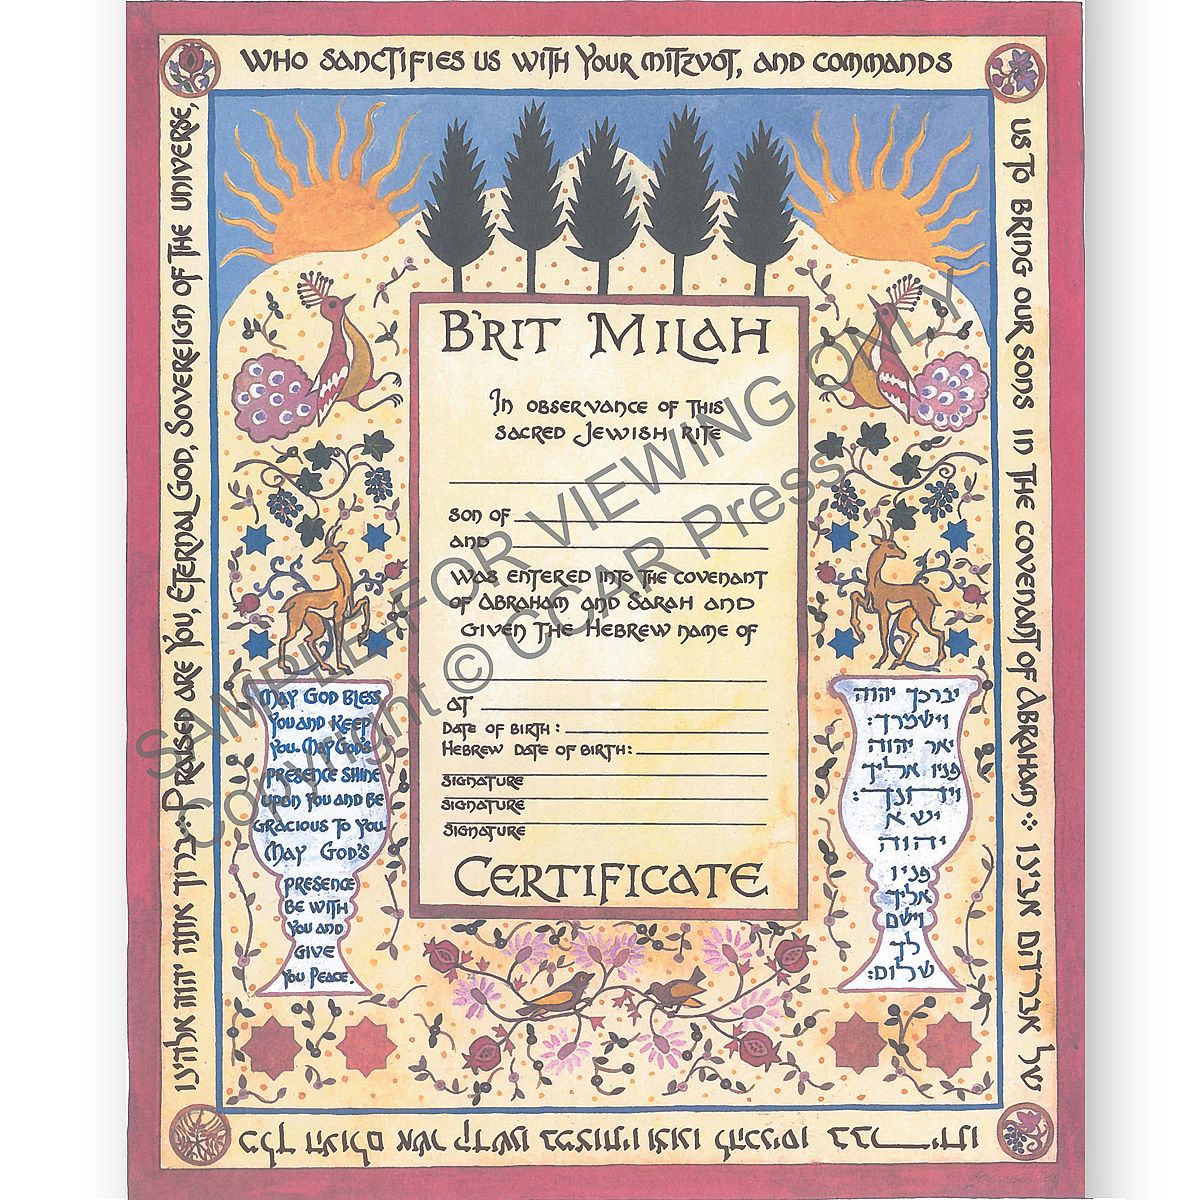 Praised are You, Eternal God, Sovereign of the universe,
who sanctifies us with Your mitzvot, and commands
us to bring our sons in the covenant of Abraham
ברוך אתה יהוה אלהינו
מלך העולם אשר קדשנו במצותיו וצונו להכניסו בבריתו
של אברהם אבינו
B'rit Milah
In observance of this
sacred Jewish rite
son of
and
was entered into the covenant
of Abraham and Sarah and
given the Hebrew name of
at
Date of birth:
Hebrew date of birth:
signature
signature
signature
Certificate
May God bless
you and keep
you. May God's
presence shine
upon you and be
gracious to you.
May God's
presence
be with
you and
give
you peace.
יברכך יהוה
וישמרך:
יאר יהוה
פניו אליך
ויחונך:
ישא
יהוה
פניו
אליך
וישם
לך
שלום:
SAMPLE FOR VIEWING ONLY
Copyright © CCAR Press